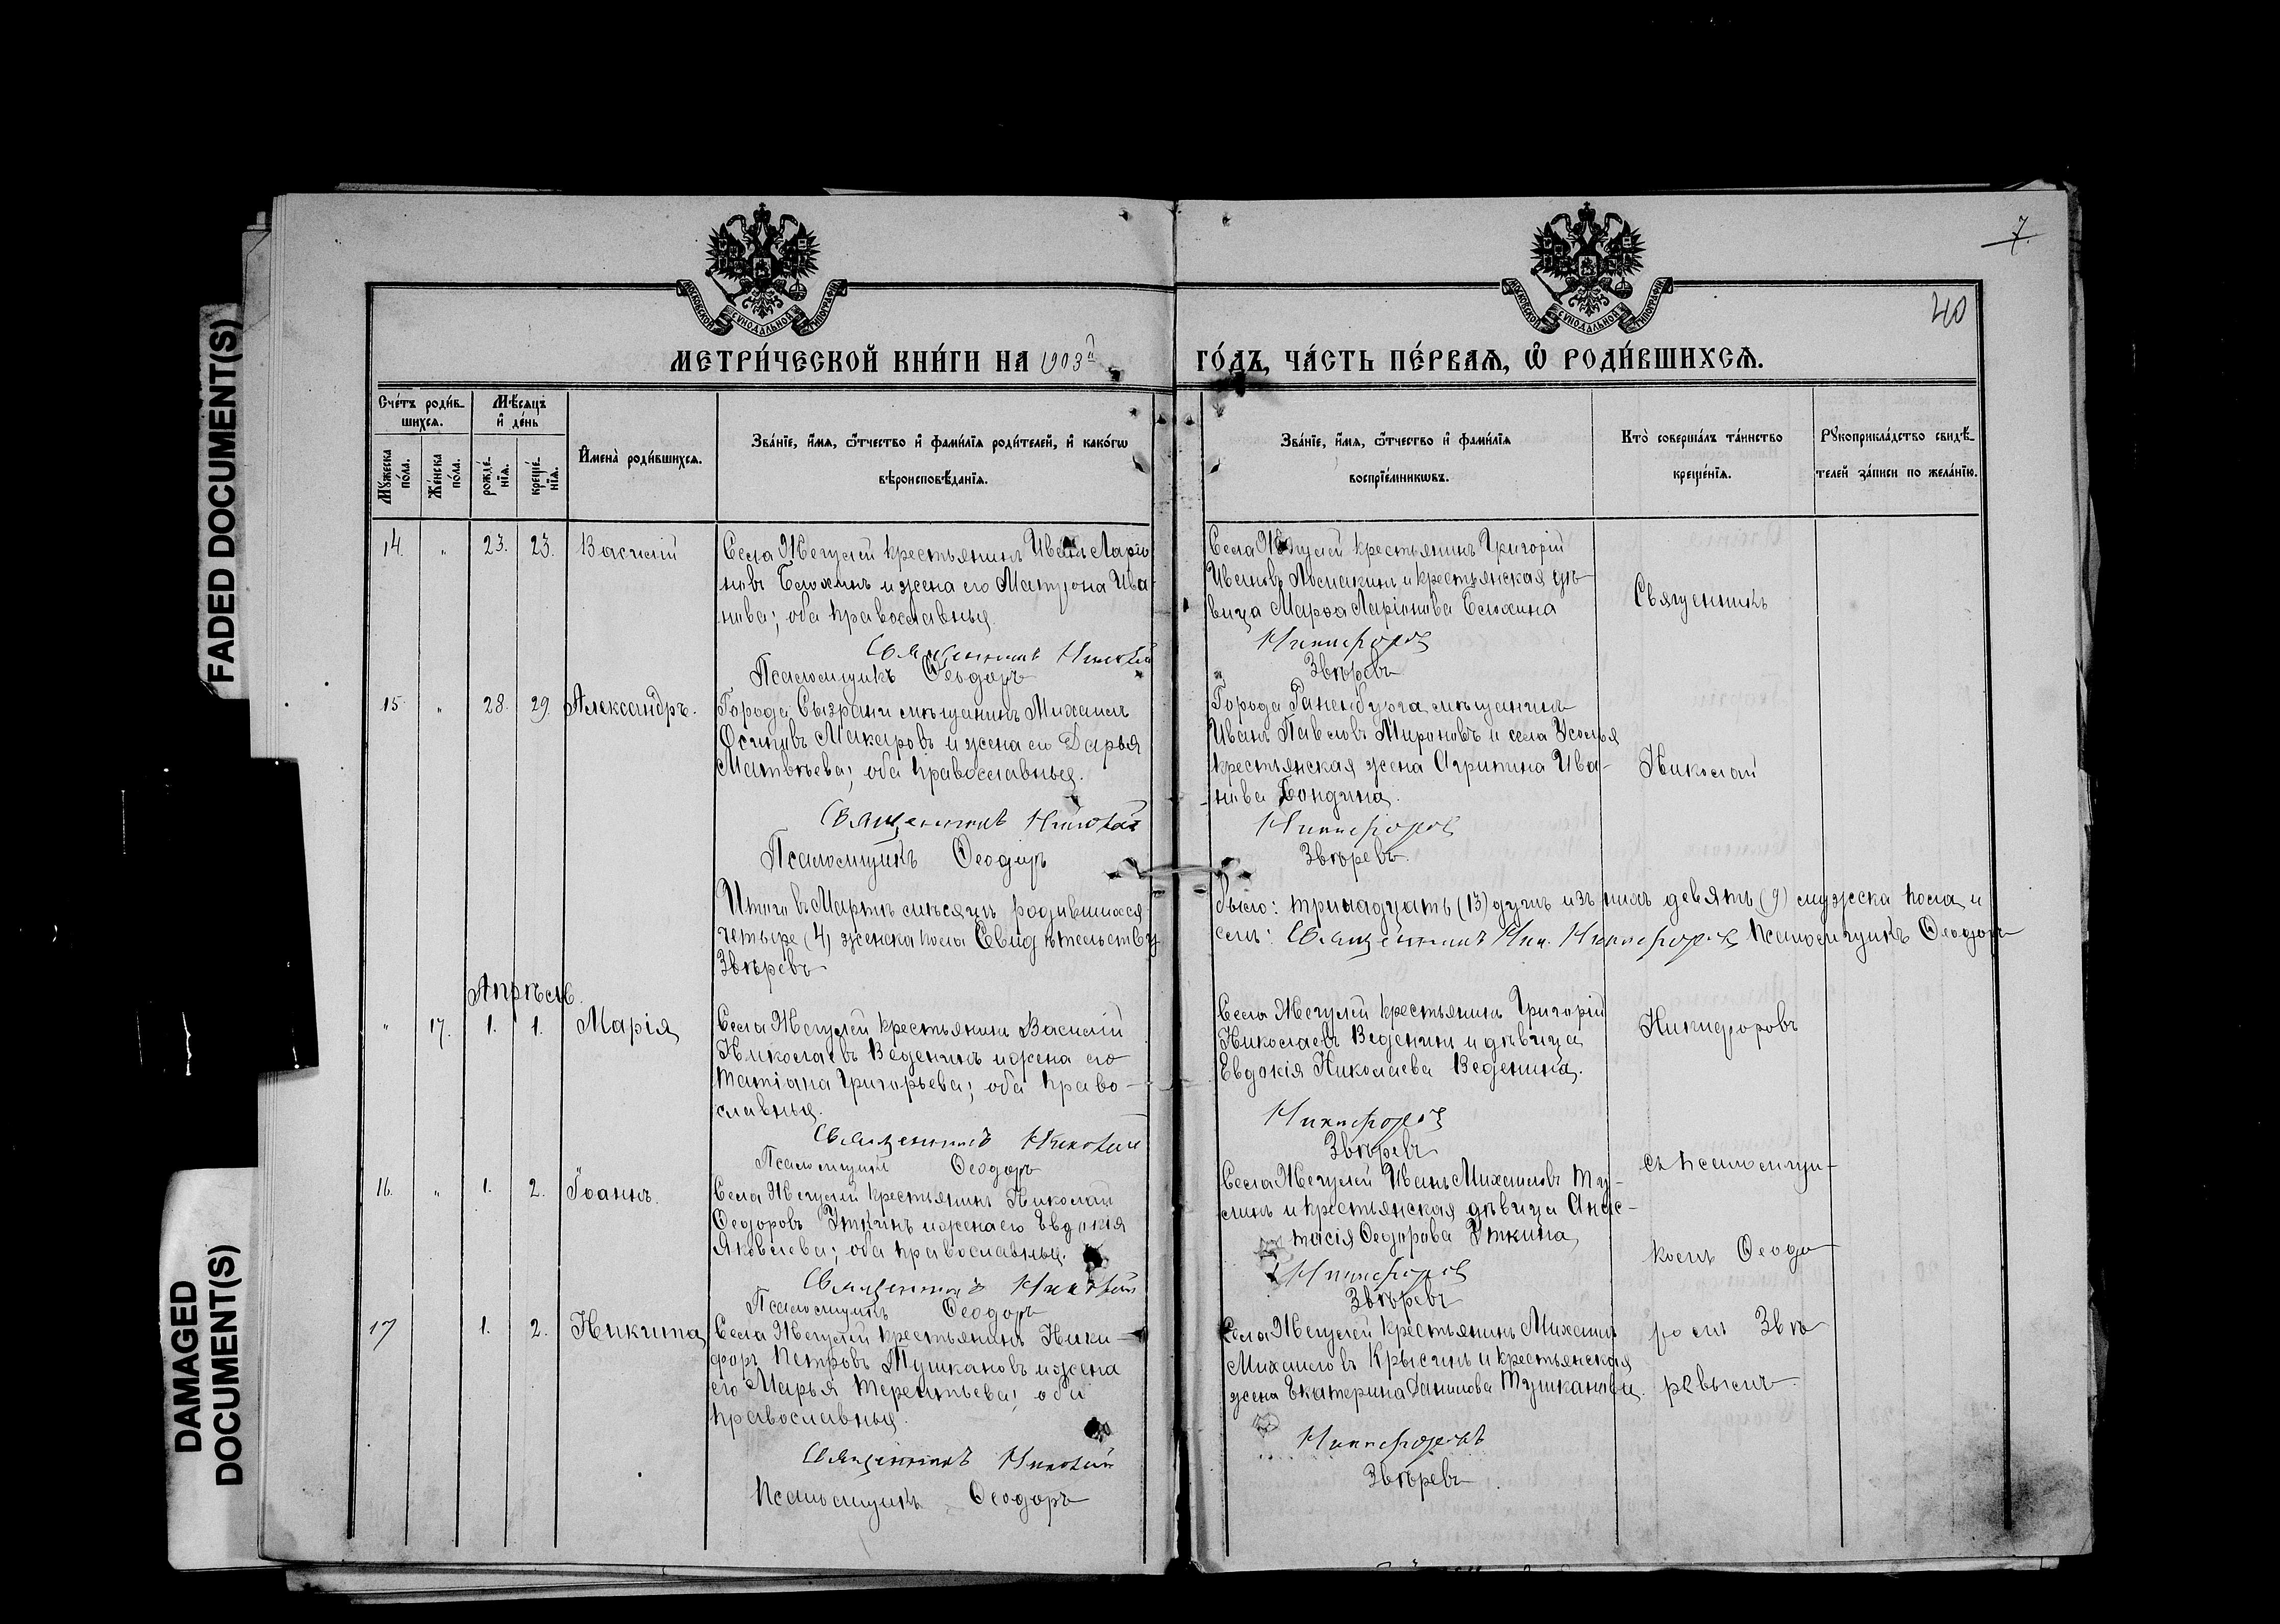 FADED DOCUMENT(S)
DAMAGED
DOCUMENT(S)
7.
40
МОСКОВСКОЙ СУНОДАЛЬНОЙ ТИПОГРАФІИ
МОСКОВСКОЙ СУНОДАЛЬНОЙ ТИПОГРАФІИ
МЕТРИ́ЧЕСКОЙ КНИ́ГИ НА 1903й ГО́ДЪ, ЧА́СТЬ ПЕ́РВАѦ, Ѡ҆ РОДИ́ВШИХСѦ.
Сче́тъ роди́в-
шихсѧ.
Мѣ́сѧцъ
и҆ де́нь
Мꙋ́жеска по́ла.
Же́нска по́ла.
рожде́-нїѧ.
креще́-нїѧ.
И҆мена̀ роди́вшихсѧ.
Зва́нїе, и҆́мѧ, ѻ҆́тчество и҆ фами́лїѧ роди́телей, и҆ како́гѡ
вѣроисповѣ́данїѧ.
Зва́нїе, и҆́мѧ, ѻ҆́тчество и҆ фами́лїѧ
воспрїе́мникѡвъ.
Кто̀ соверша́лъ та́инство
креще́нїѧ.
Рꙋкоприкла́дство свидѣ́-
телей за́писи по жела́нїю.
14. " 23. 23. Василій
Села Жегулей крестьянинъ Иванъ Ларіо
новъ Блохинъ и жена его Матрона Ива-
нова; оба православные.
Священникъ Николай
Псаломщикъ Ѳеодоръ
Села Жегулей крестьянинъ Григорій
Ивановъ Лосмакинъ и крестьянская дѣ-
вица Марѳа Ларіонова Блохина
Никифоровъ
Звѣревъ
Священникъ
15 " 28. 29. Александръ.
Города Сызрани мѣщанинъ Михаилъ
Осиповъ Макаровъ и жена его Дарья
Матвѣева; оба православные.
Священникъ Николай
Псаломщикъ Ѳеодоръ
Города Раненбурга мѣщанинъ
Иванъ Павловъ Мироновъ и села Усолья
крестьянская жена Агрипина Ива-
нова Бондина.
Никифоровъ
Звѣревъ.
Николай
Итого въ Мартѣ мѣсяцѣ родившихся было: тринадцать (13) душъ изъ нихъ девять (9) мужска пола и
четыре (4) женска пола Свидѣтельству емъ: Священникъ Ник. Никифоровъ Псаломщикъ Ѳеодоръ
Звѣревъ
Апрѣль.
" 17. 1. 1. Марія
Села Жегулей крестьянинъ Василій
Николаевъ Веденинъ и жена его
Татіана Григорьева; оба право-
славные.
Священникъ Николай
Псаломщикъ Ѳеодоръ
Села Жегулей крестьянинъ Григорій
Николаевъ Веденинъ и дѣвица
Евдокія Николаева Веденина.
Никифоровъ
Звѣревъ
Никифоровъ
16. " 1. 2. Іоаннъ.
Села Жегулей крестьянинъ Николай
Ѳеодоровъ Уткинъ и жена его Евдокія
Яковлева; оба православные.
Священникъ Николай
Псаломщикъ Ѳеодоръ
Села Жегулей Иванъ Михайловъ Ту-
линъ и крестьянская дѣвица Анас-
тасія Ѳеодорова Уткина
Никифоровъ
Звѣревъ
съ псаломщи-
комъ Ѳеодо
17 1. 2. Никита
Села Жегулей крестьянинъ Ники-
форъ Петровъ Тушкановъ и жена
его Марья Терентьева; оба
православные.
Священникъ Николай
Псаломщикъ Ѳеодоръ
Села Жегулей крестьянинъ Михаилъ
Михайловъ Крысинъ и крестьянская
жена Екатерина Данилова Тушканова.
Никифоровъ
Звѣревъ
ромъ Звѣ
ревымъ.